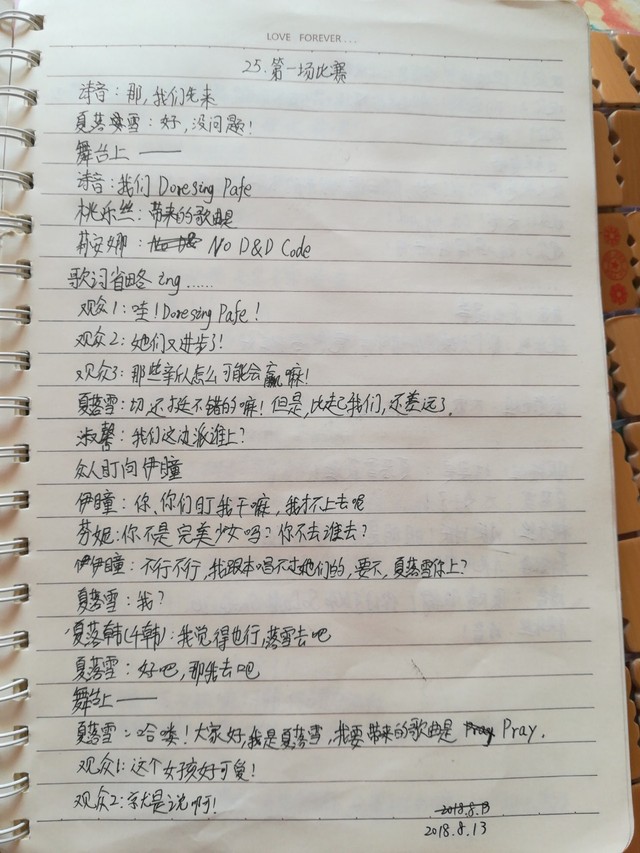 LOVE FOREVER...
25.第一场比赛
涛音:那,我们先来
夏落雪:好,没问题!
舞台上——
涛音:我们 Doresing Pafe
桃乐丝:带来的歌曲是
莉安娜: No D&D Code
歌词省略 ing……
观众1:哇!Doresing Pafe!
观众2:她们又进步了!
观众3:那些新人怎么可能会赢嘛!
夏落雪:切,还挺不错的嘛!但是,比起我们,还差远了。
淑馨:我们这边派谁上?
众人盯向伊瞳
伊瞳:你、你们盯我干嘛,我才不上去呢
芬妮:你不是完美少女吗?你不去谁去?
伊伊瞳:不行不行,我跟本唱不过她们的,要不,夏落雪你上?
夏落雪:我?
夏落韩(千韩):我觉得也行,落雪去吧
夏落雪:好吧,那我去吧
舞台上——
夏落雪:哈喽!大家好,我是夏落雪,我要带来的歌曲是 Pray Pray.
观众1:这个女孩好可爱!
观众2:就是说啊!
2018.8.13
2018.8.13